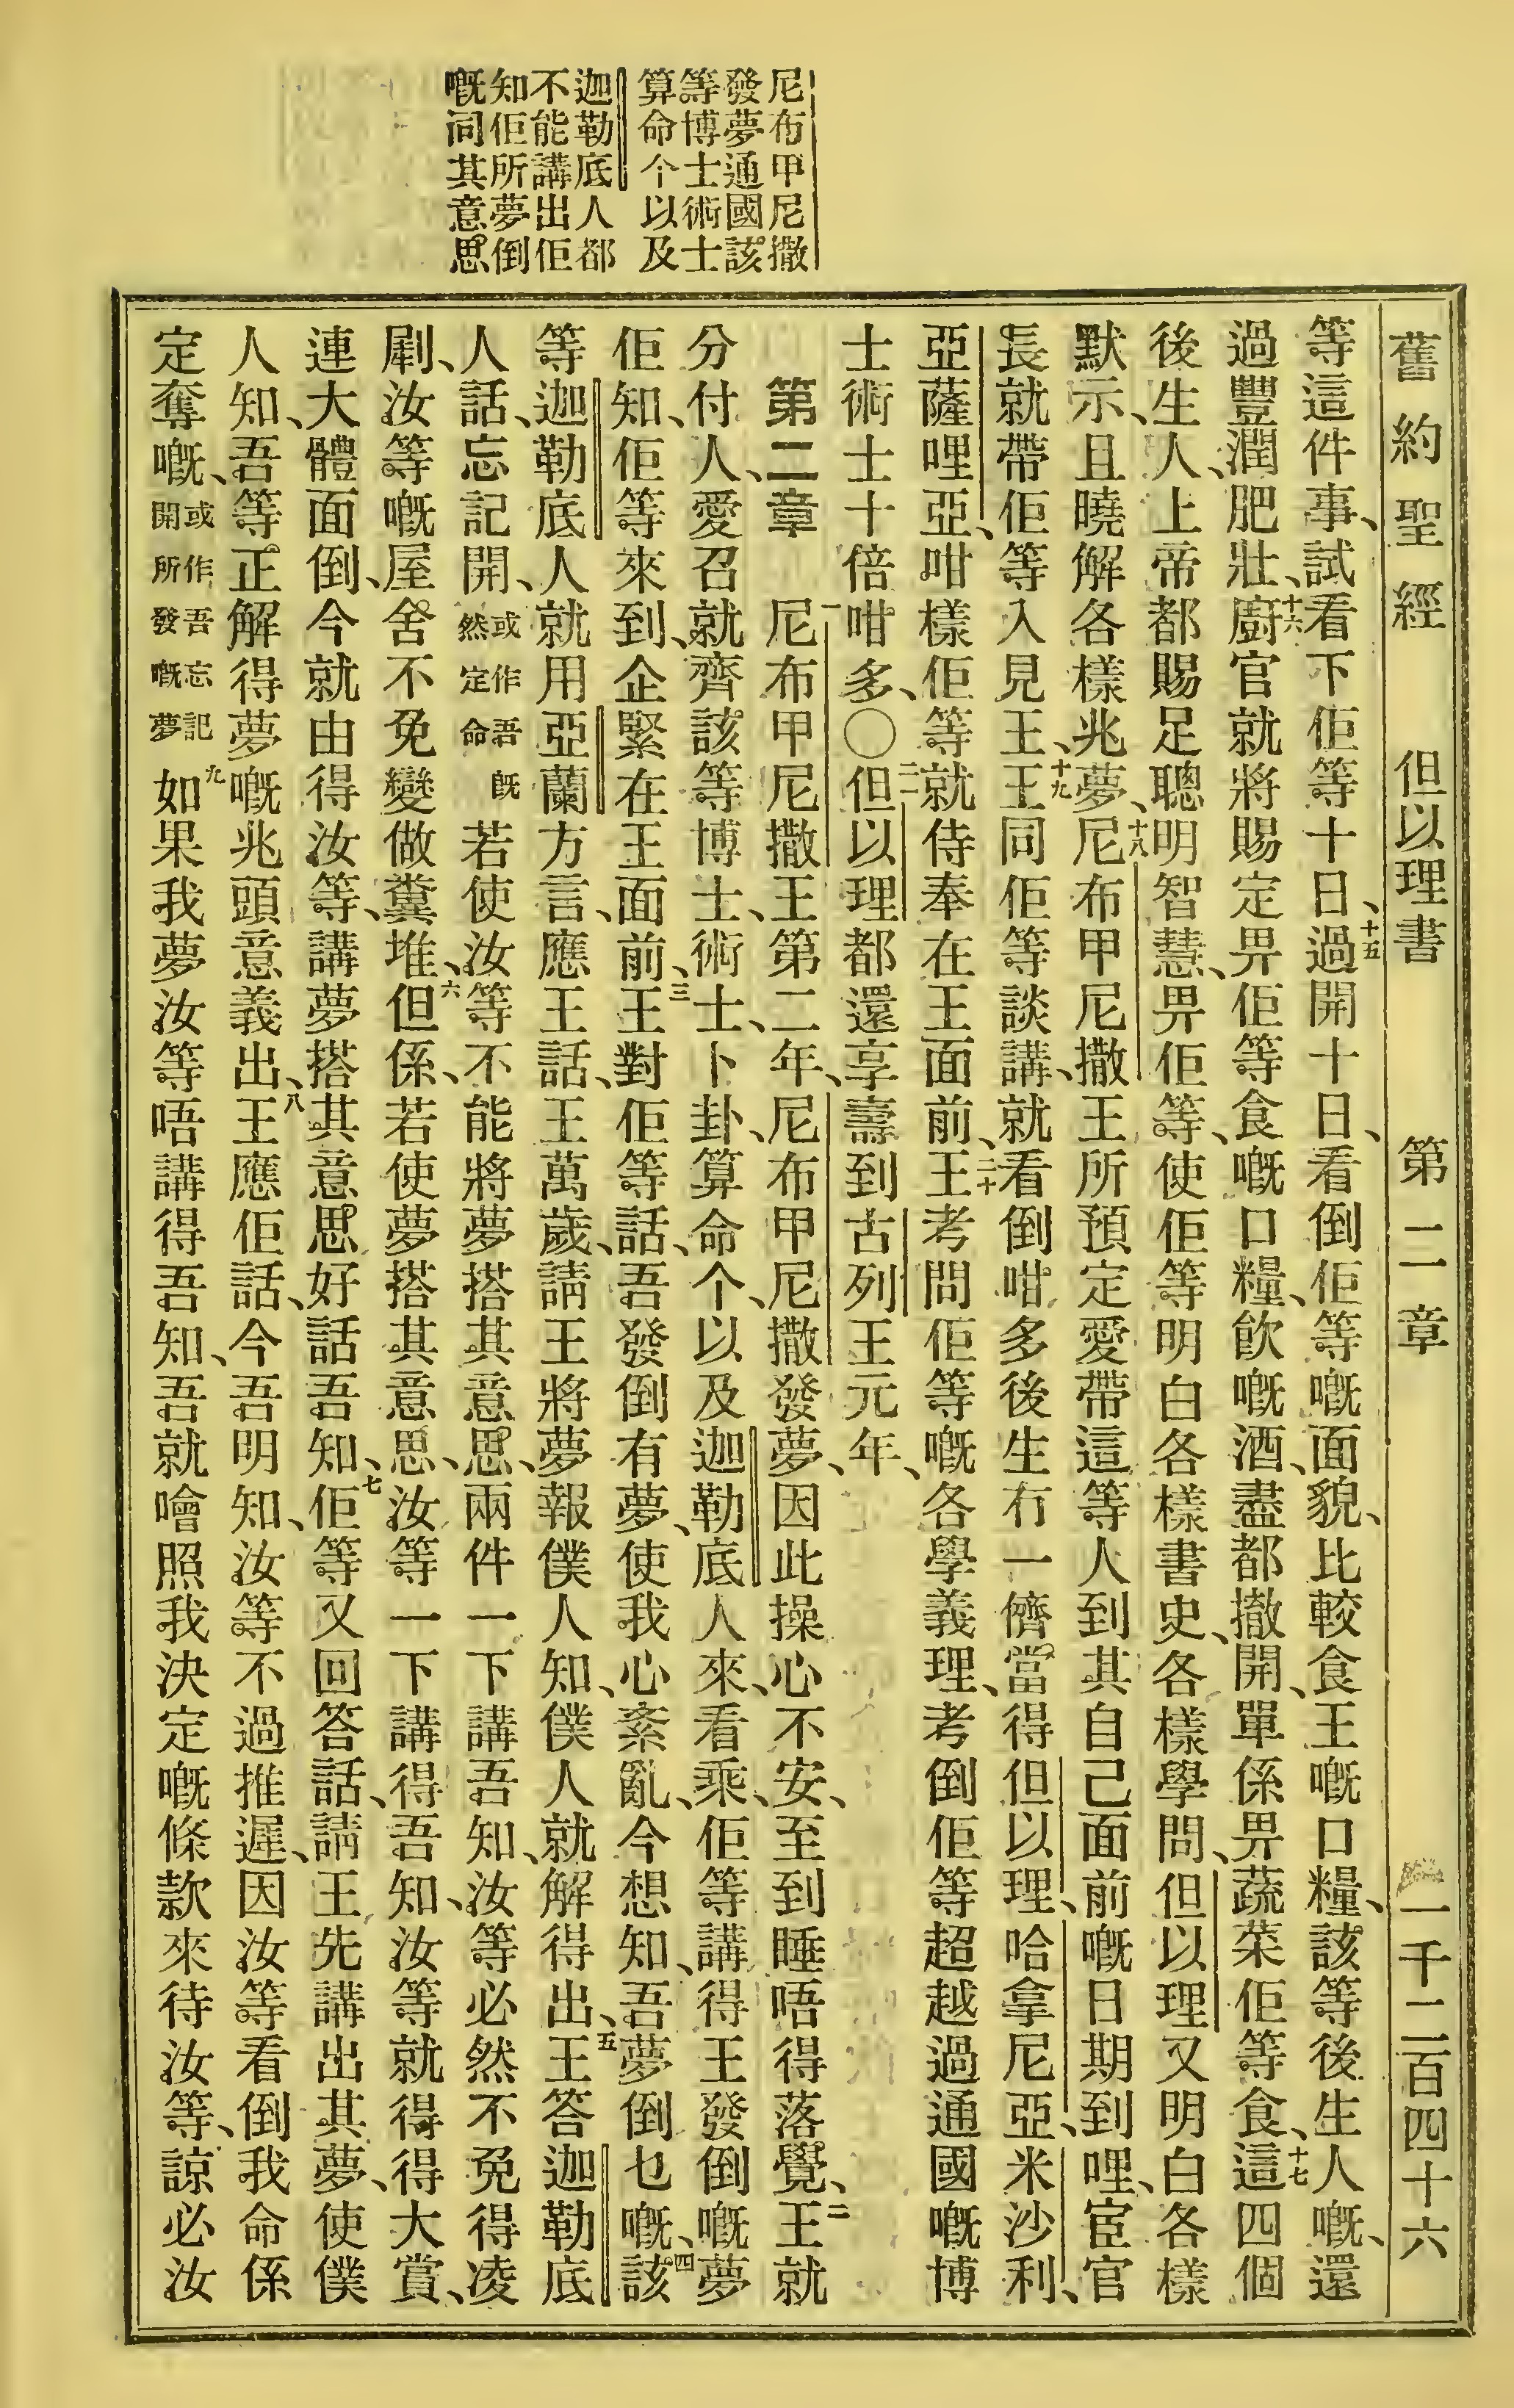 尼布甲尼撒
發夢通國該
等博士術士
算命个以及
迦勒底人都
不能講出佢
知佢所夢倒
嘅同其意思
舊約聖經　但以理書　第二章　一千二百四十六
等這件事、試看下佢等十日、十五過開十日、看倒佢等嘅面貌、比較食王嘅口糧、該等後生人嘅、還
過豐潤肥壯、十六廚官就將賜定畀佢等食嘅口糧、飲嘅酒、盡都撤開、單係畀蔬菜佢等食、十七這四個
後生人、上帝都賜足聰明智慧、畀佢等、使佢等明白各樣書史、各樣學問、但以理又明白各樣
默示、且曉解各樣兆夢、十八尼布甲尼撒王所預定愛帶這等人到其自己面前嘅日期到哩、宦官
長就帶佢等入見王、十九王同佢等談講、就看倒咁多後生冇一儕當得但以理、哈拿尼亞、米沙利、
亞薩哩亞、咁樣佢等就侍奉在王面前、二十王考問佢等嘅各學義理、考倒佢等超越過通國嘅博
士術士十倍咁多、〇二一但以理都還享壽到古列王元年、
第二章　一尼布甲尼撒王第二年、尼布甲尼撒發夢、因此操心不安、至到睡唔得落覺、二王就
分付人、愛召就齊該等博士、術士、卜卦、算命个、以及迦勒底人來、看乘、佢等講得王發倒嘅夢
佢知、佢等來到、企緊在王面前、三王對佢等話、吾發倒有夢、使我心紊亂、今想知、吾夢倒乜嘅、四該
等迦勒底人就用亞蘭方言、應王話、王萬歲、請王將夢報僕人知、僕人就解得出、五王答迦勒底
人話、忘記開、或作吾既然定命若使汝等不能將夢搭其意思、兩件一下講吾知、汝等必然不免得凌
剮、汝等嘅屋舍不免變做糞堆、六但係、若使夢搭其意思、汝等一下講得吾知、汝等就得得大賞、
連大體面倒、今就由得汝等、講夢搭其意思好話吾知、七佢等又回答話、請王先講出其夢、使僕
人知、吾等正解得夢嘅兆頭意義出、八王應佢話、今吾明知、汝等不過推遲、因汝等看倒我命係
定奪嘅、或作吾忘記開所發嘅夢九如果我夢汝等唔講得吾知、吾就噲照我決定嘅條款來待汝等、諒必汝